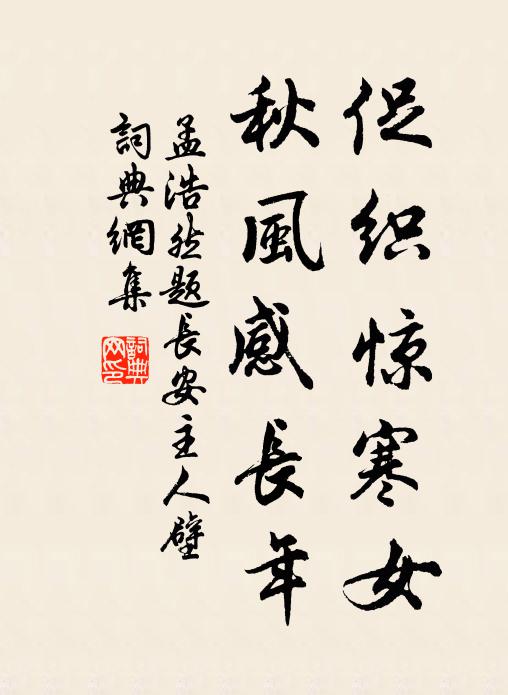 促织惊寒女
秋風感長年
孟浩然题長安主人壁
詞典網集
詞典
网印